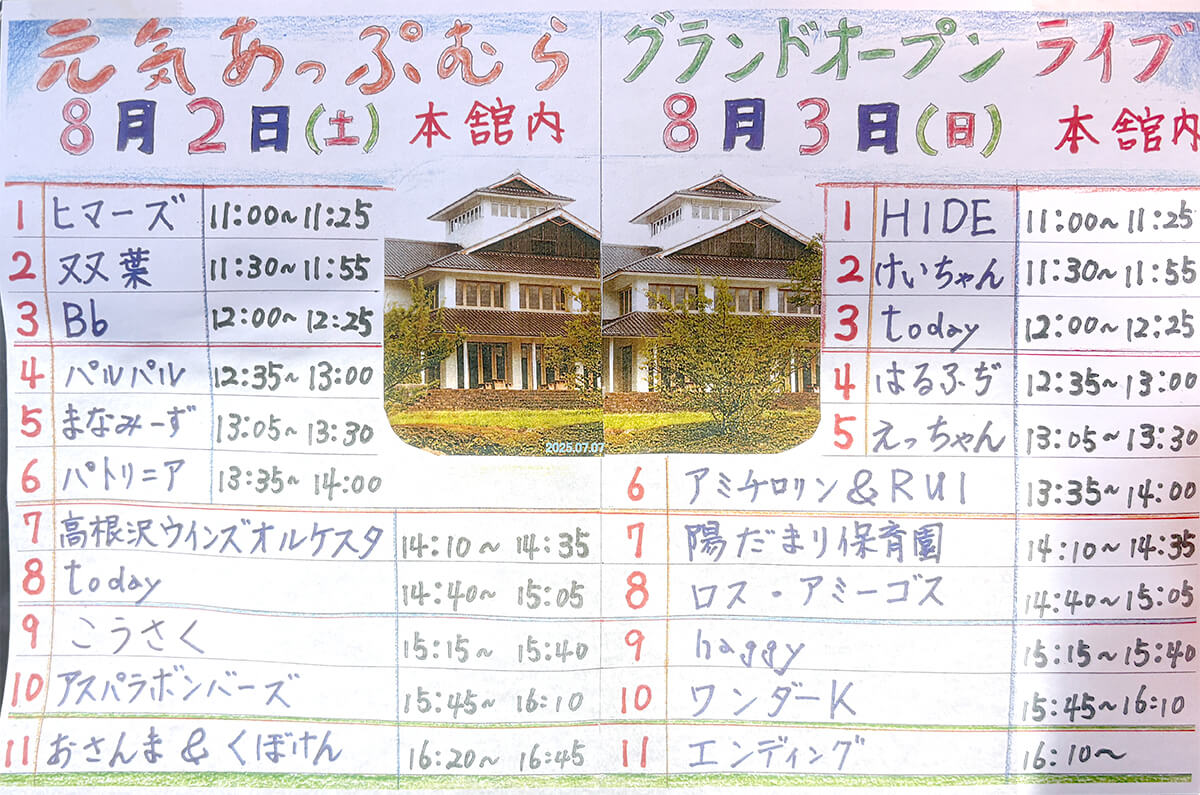 元気あっぷむら グランドオープン ライブ
8月2日(土) 本舘内
1 ヒマーズ 11:00~11:25
2 双葉 11:30~11:55
3 Bb 12:00~12:25
4 パルパル 12:35~13:00
5 まなみーず 13:05~13:30
6 パトリニア 13:35~14:00
7 高根沢ウインズオルケスタ 14:10~14:35
8 today 14:40~15:05
9 こうさく 15:15~15:40
10 アスパラボンバーズ 15:45~16:10
11 おさんま&くぼけん 16:20~16:45
2025.07.07
8月3日(日) 本舘内
1 HIDE 11:00~11:25
2 けいちゃん 11:30~11:55
3 today 12:00~12:25
4 はるふぢ 12:35~13:00
5 えっちゃん 13:05~13:30
6 アミチロリン&RUI 13:35~14:00
7 陽だまり保育園 14:10~14:35
8 ロス・アミーゴス 14:40~15:05
9 haggy 15:15~15:40
10 ワンダーK 15:45~16:10
11 エンディング 16:10~